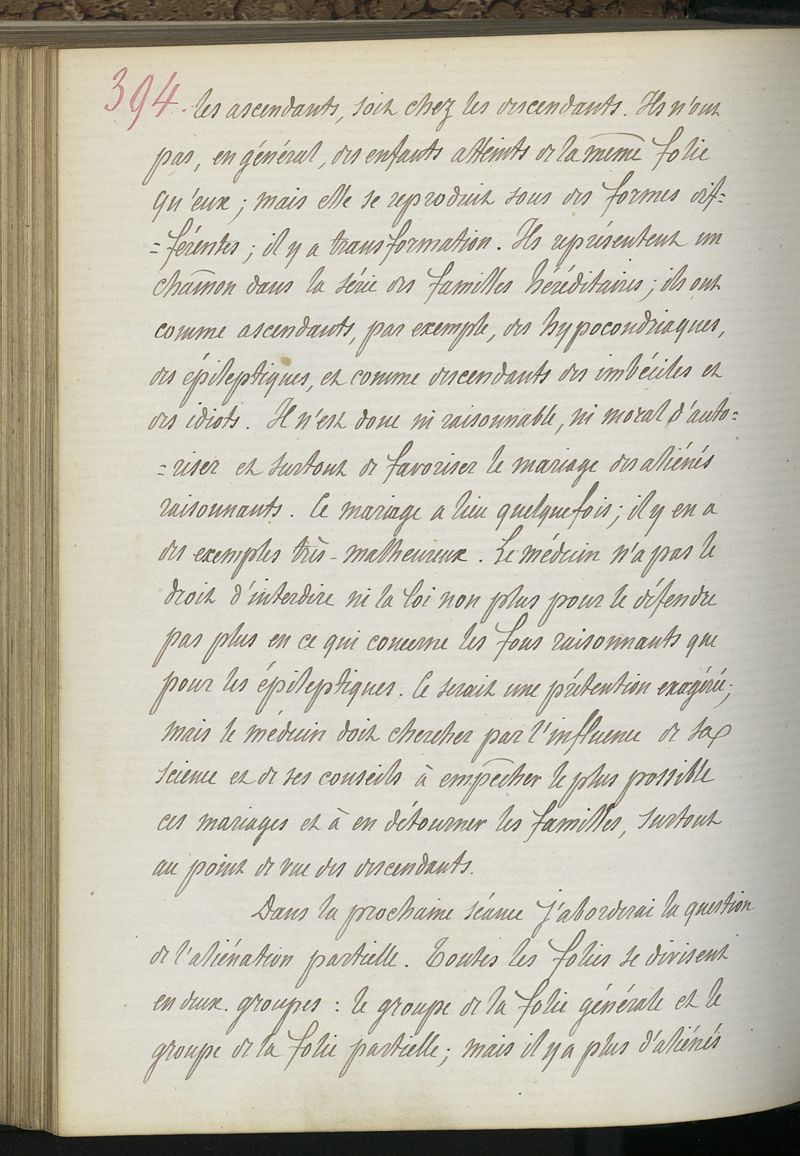 394. les ascendants, soit chez les descendants. Ils n'ont
pas, en général, des enfants atteints de la même folie
qu'eux ; mais elle se reproduit sous des formes dif=
=férentes ; il y a transformation. Ils représentent un
chaînon dans la série des familles héréditaires ; ils ont
comme ascendants, par exemple, des hypocondriaques,
des épileptiques, et comme descendants des imbéciles et
des idiots. Il n'est donc ni raisonnable, ni moral d'auto=
=riser et surtout de favoriser le mariage des aliénés
raisonnants. Ce mariage a lieu quelquefois ; il y en a
des exemples très-malheureux. Le médecin n'a pas le
droit d'interdire ni la loi non plus pour le défendre
pas plus en ce qui concerne les fous raisonnants que
pour les épileptiques. Ce serait une prétention exagérée ;
mais le médecin doit chercher par l'influence de sa
science et de ses conseils à empêcher le plus possible
ces mariages et à en détourner les familles, surtout
au point de vue des descendants.
Dans la prochaine séance j'aborderai la question
de l'aliénation partielle. Toutes les folies se divisent
en deux groupes : le groupe de la folie générale et le
groupe de la folie partielle ; mais il y a plus d'aliénés